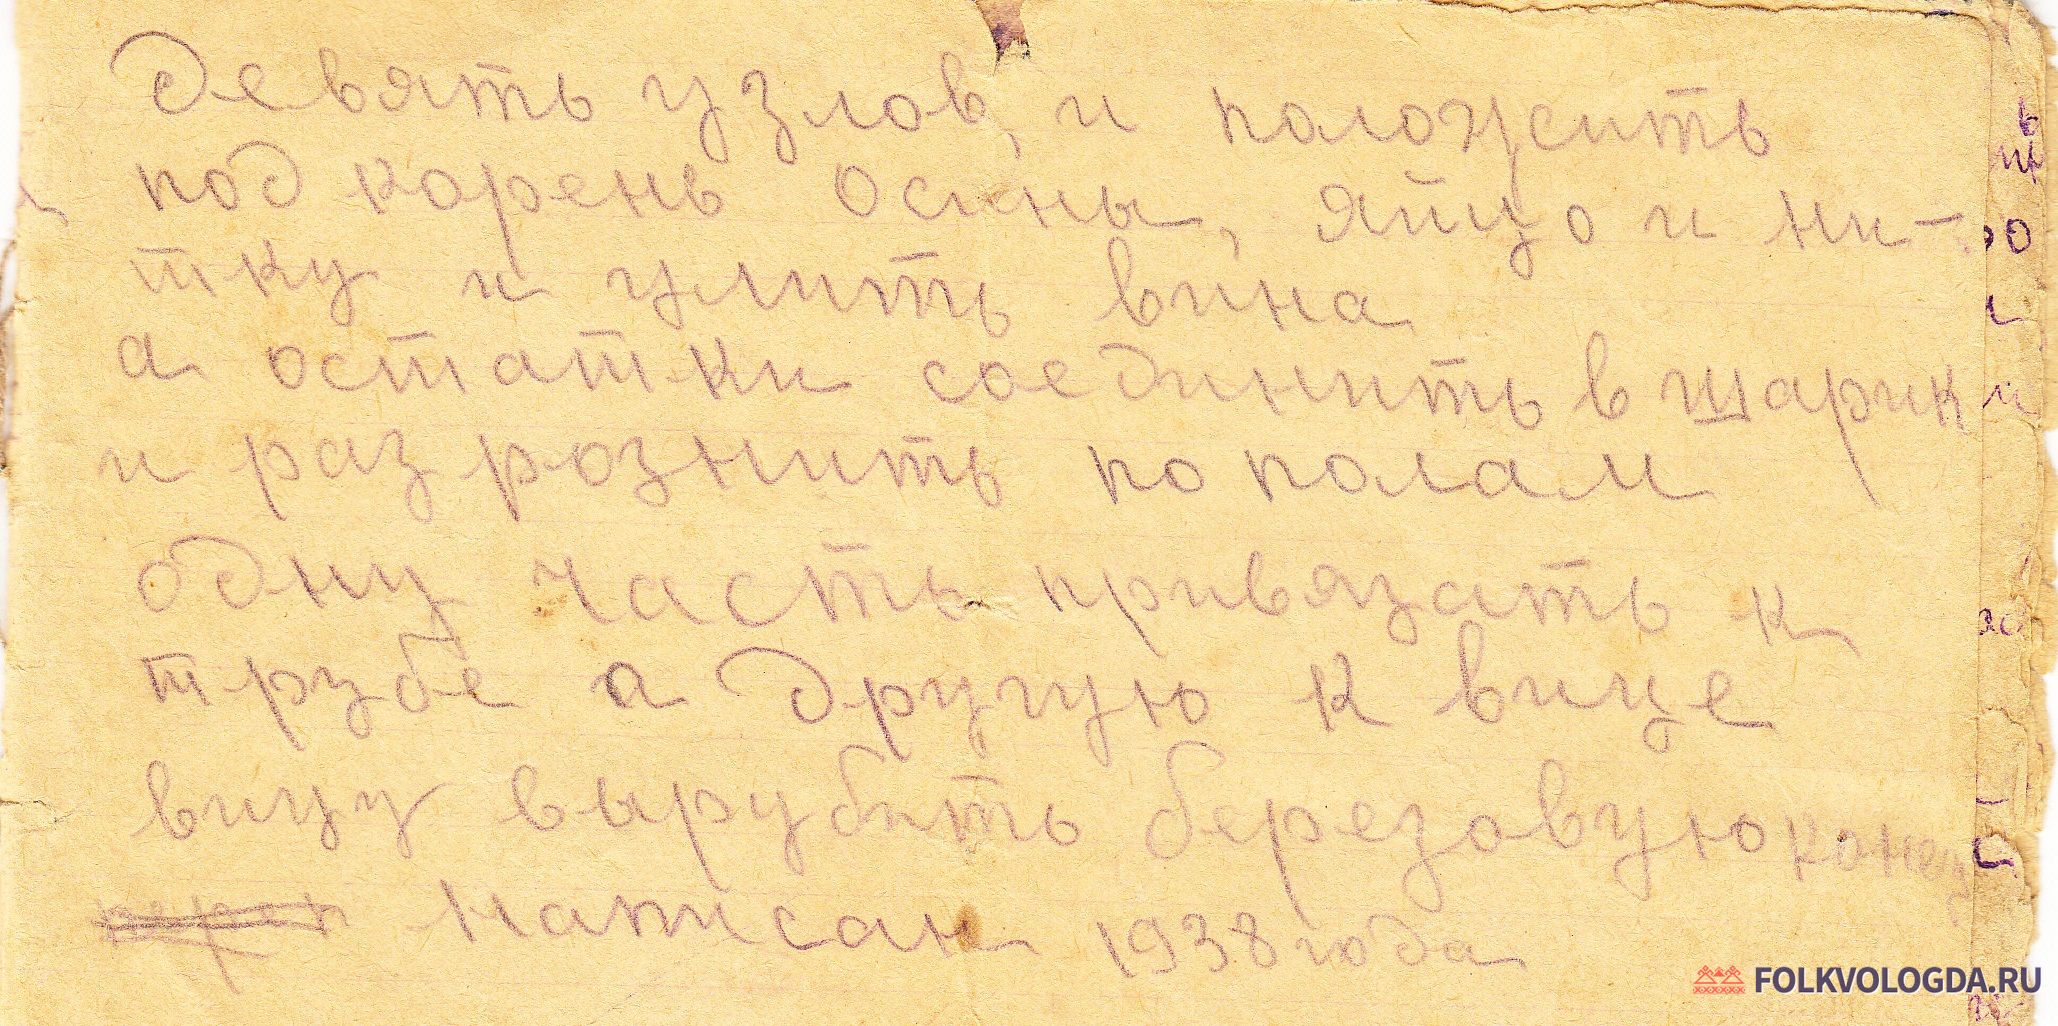 девять узлов, и положить
под корень осины, яйцо и ни-
тку и улить вина
а остатки соединить в шарик
и разрознить по полам
одну часть привязать к
трубе а другую к вице
вицу вырубить березовую конец
написан 1938 года
FOLKVOLOGDA.RU